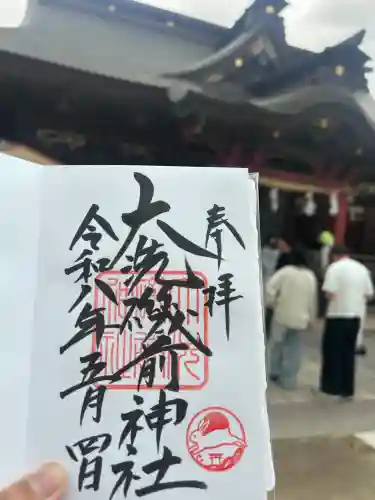 奉拝
大洗磯前神社
令和八年五月四日